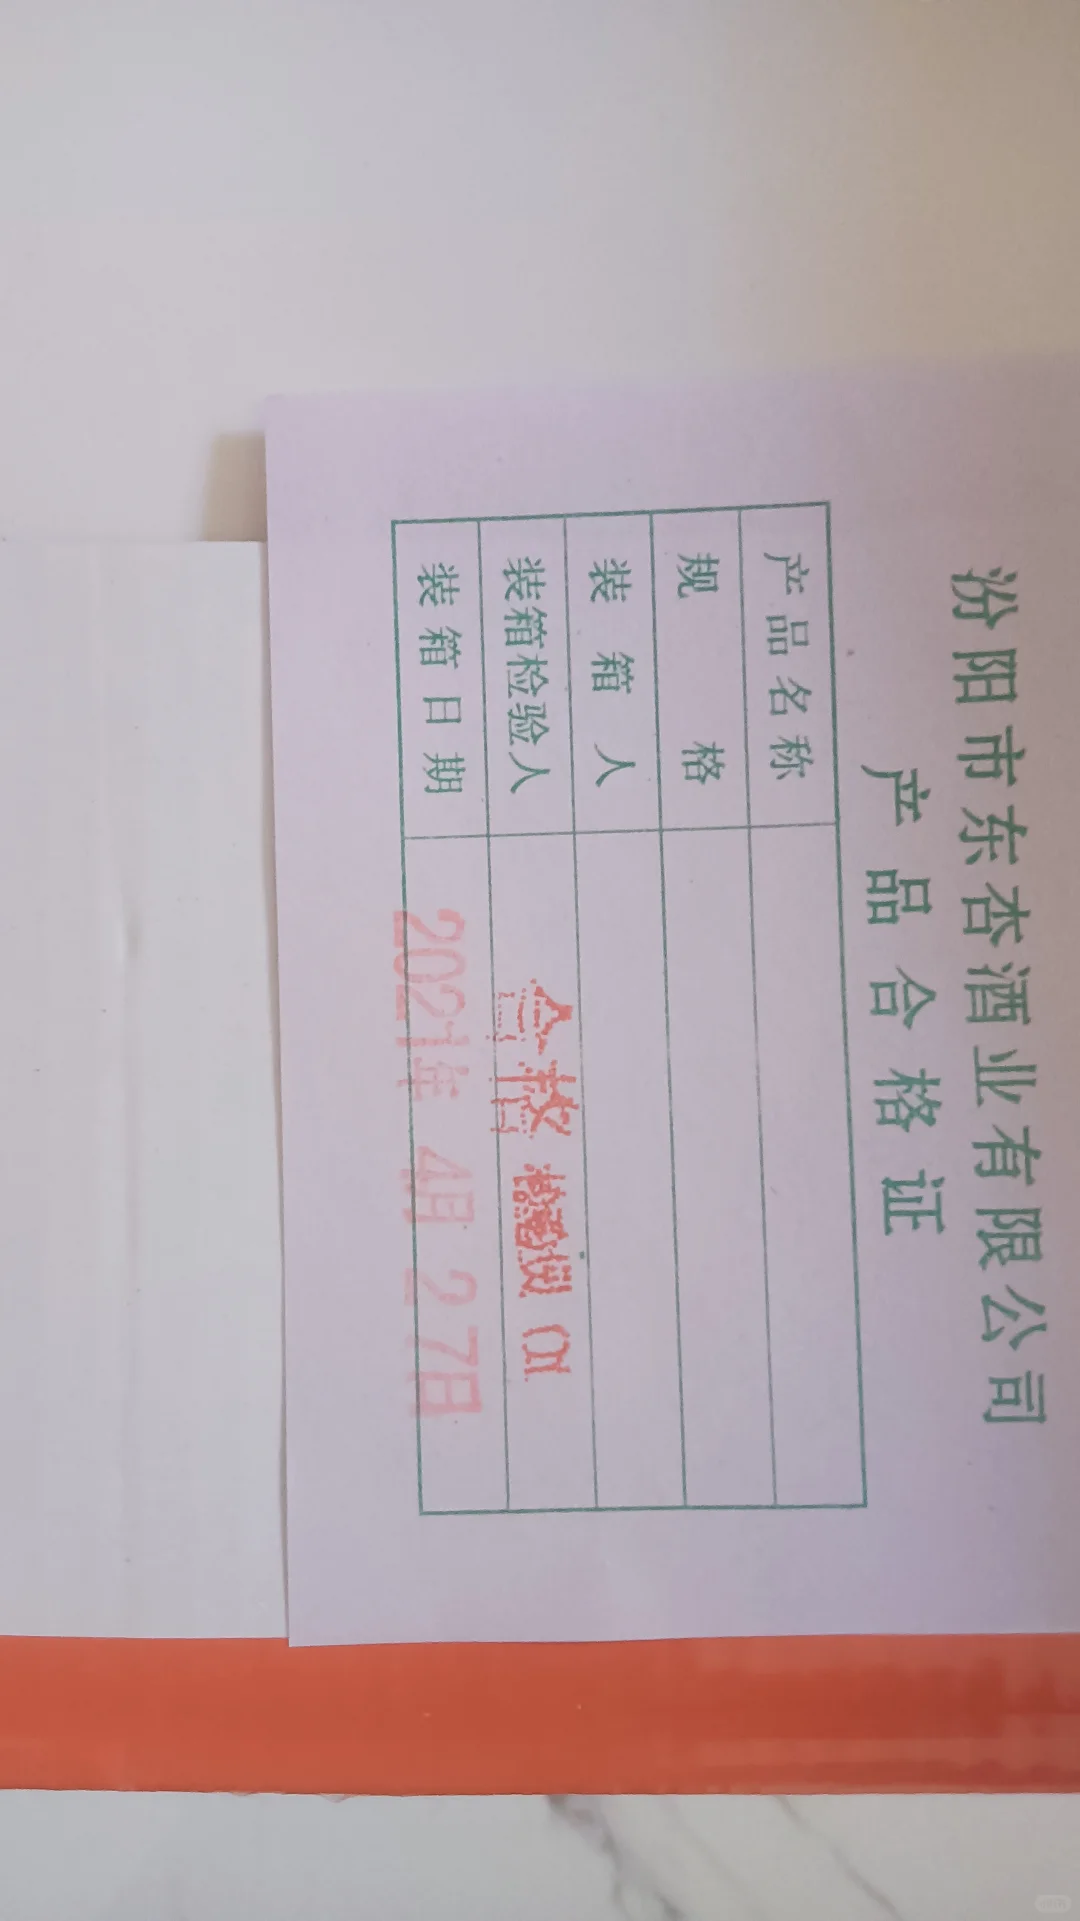 汾阳市东杏酒业有限公司
产品合格证
产品名称
规格
装箱人
装箱检验人 合格 检验员 01
装箱日期 2021年 4月 27日